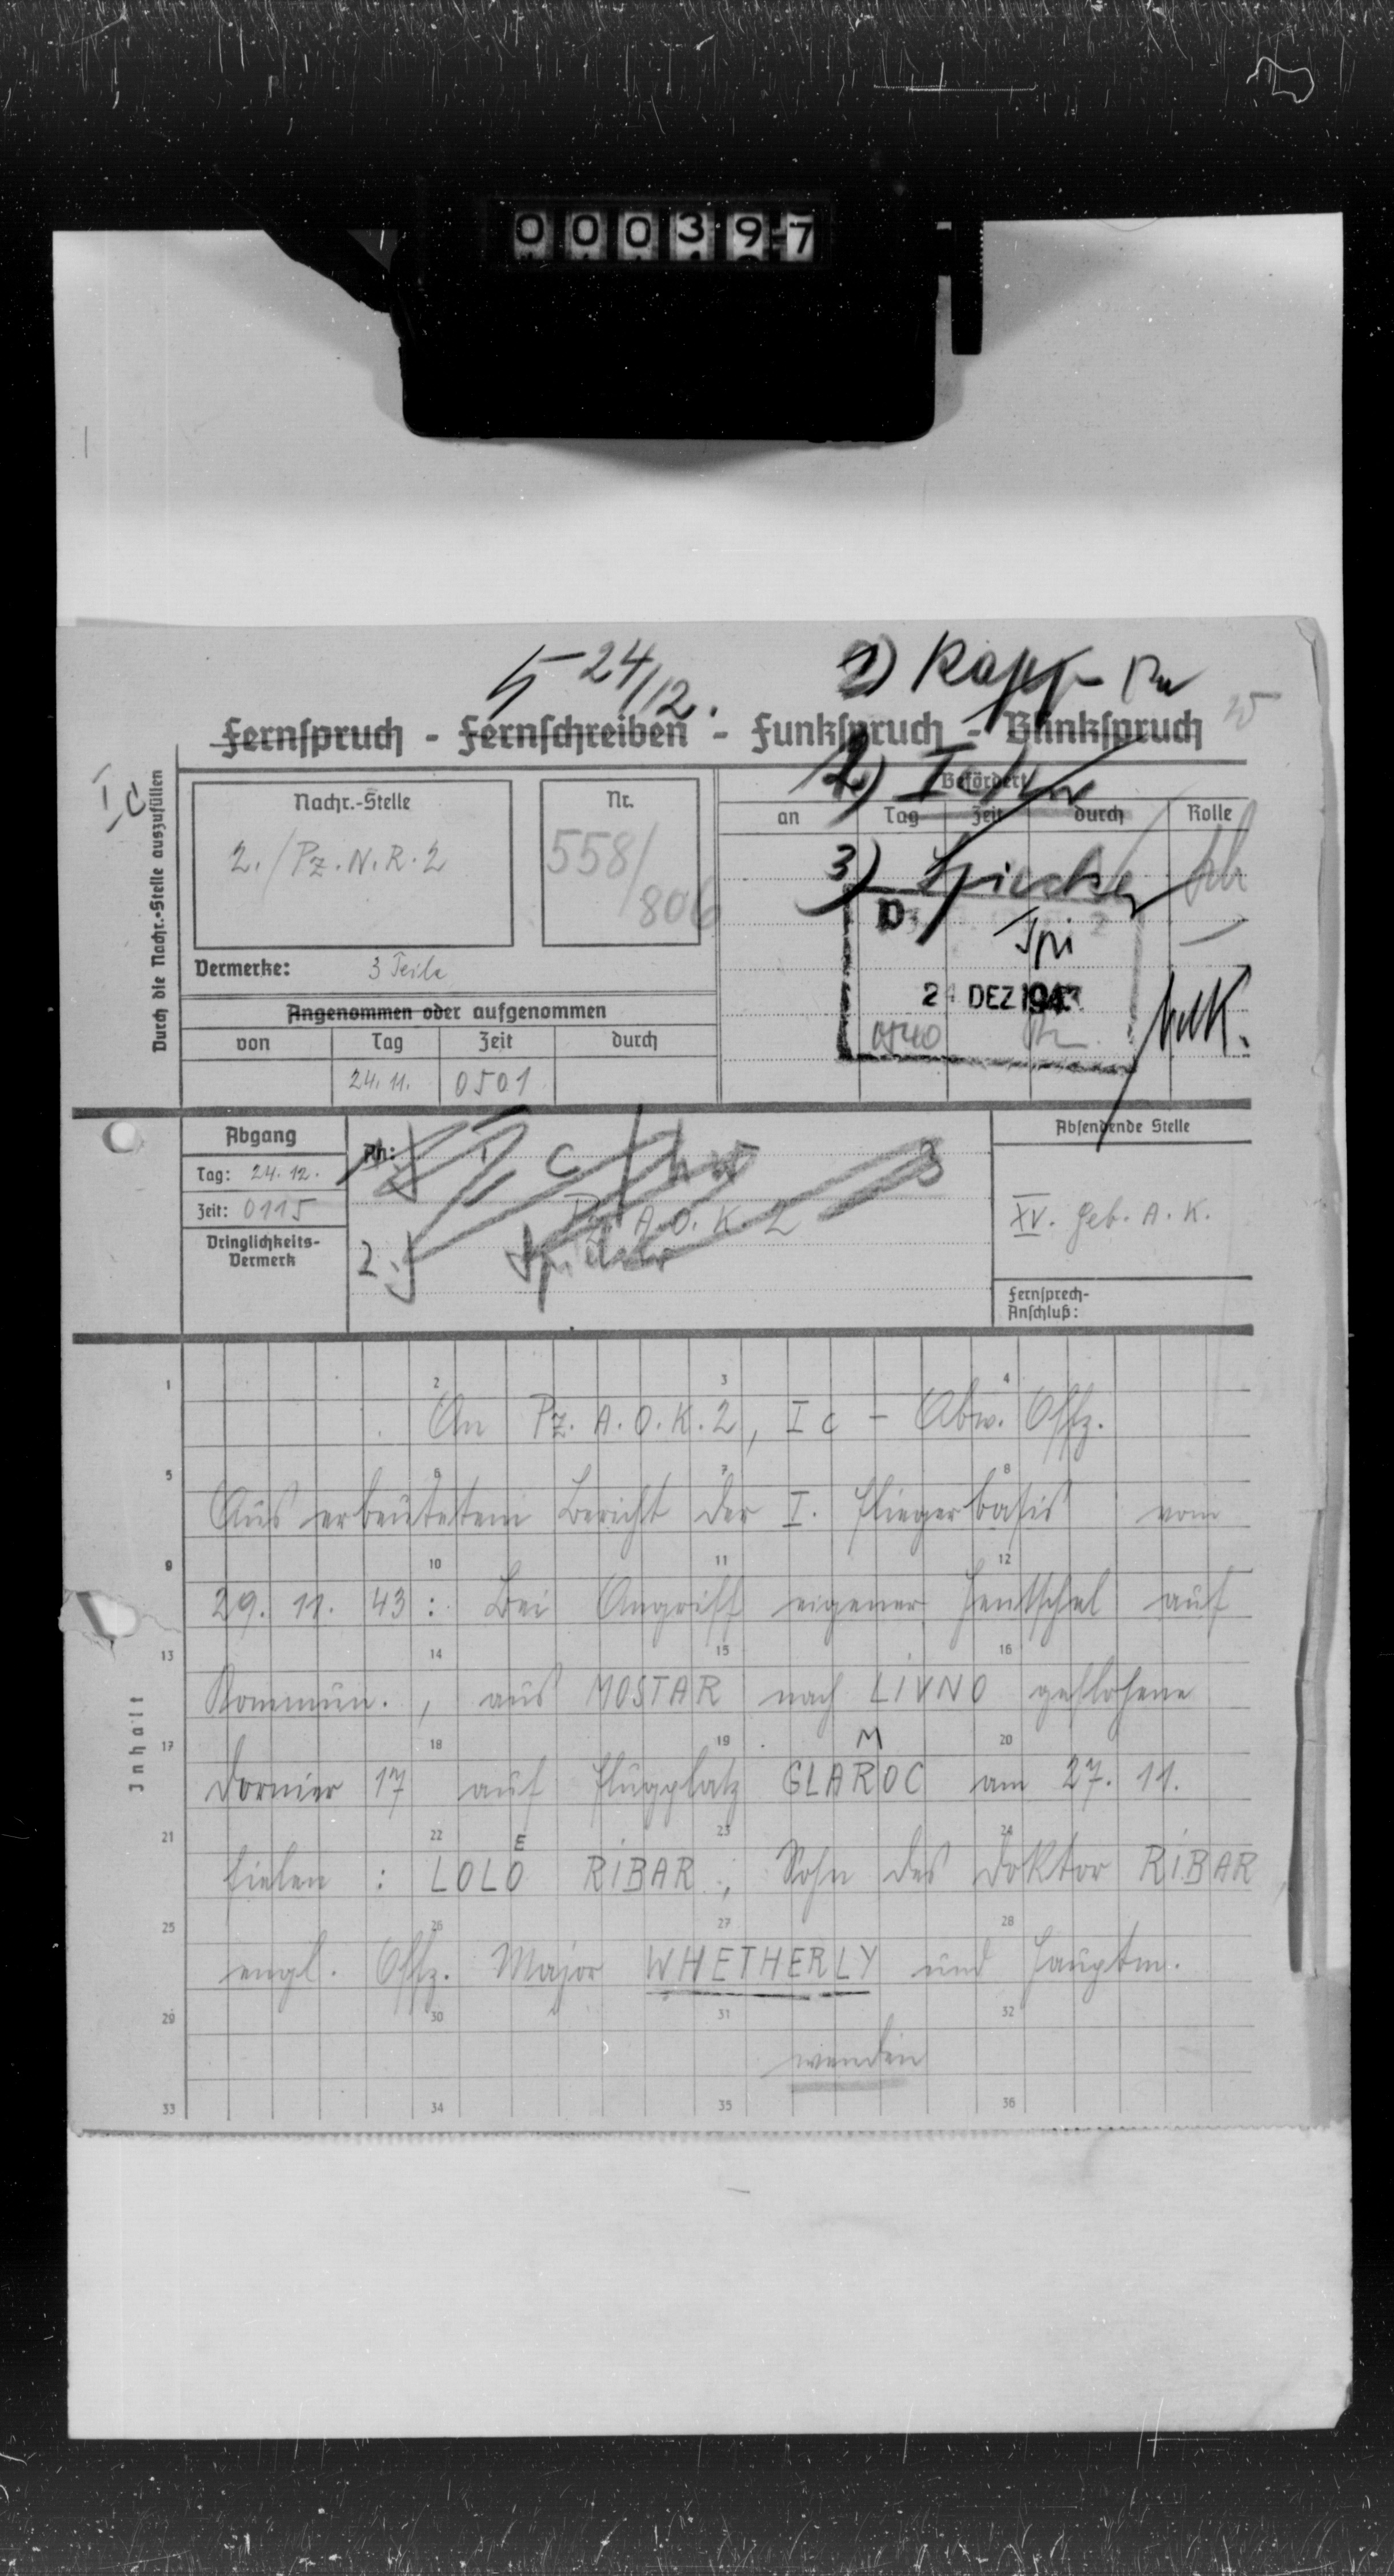 000397
5 24/12.
1) Rapp
Fernspruch - Fernschreiben - Funkspruch - Blinkspruch
Durch die Nachr.-Stelle auszufüllen
Ic
Nachr.-Stelle
2./Pz.N.R.2
Nr.
558/
806
2) Ic/
Befördert
an Tag Zeit durch Rolle
3)
Spi
24 DEZ 1943
0540
Vermerke: 3 Teile
Angenommen oder aufgenommen
von Tag Zeit durch
24.11. 0501
Abgang
Tag: 24.12.
Zeit: 0115
Dringlichkeits-
Vermerk
An:
1.) Ic
Pz. A.O.K. 2
2.)
Absendende Stelle
XV. Geb. A.K.
Fernsprech-
Anschluß:
Inhalt
1 2 3 4
An Pz. A.O.K. 2, Ic - Abw. Offz.
5 6 7 8
Aus erbeutetem Bericht der I. Fliegerbasis vom
9 10 11 12
29. 11. 43 : Bei Angriff eigener Hentschel auf
13 14 15 16
Kommun., aus MOSTAR nach LIVNO geflohene
17 18 19 20
M
Dornier 17 auf Flugplatz GLAROC am 27. 11.
21 22 23 24
E
fielen : LOLO RIBAR, Sohn des Doktor RIBAR,
25 26 27 28
engl. Offz. Major WHETHERLY und Hauptm.
29 30 31 32
wenden
33 34 35 36